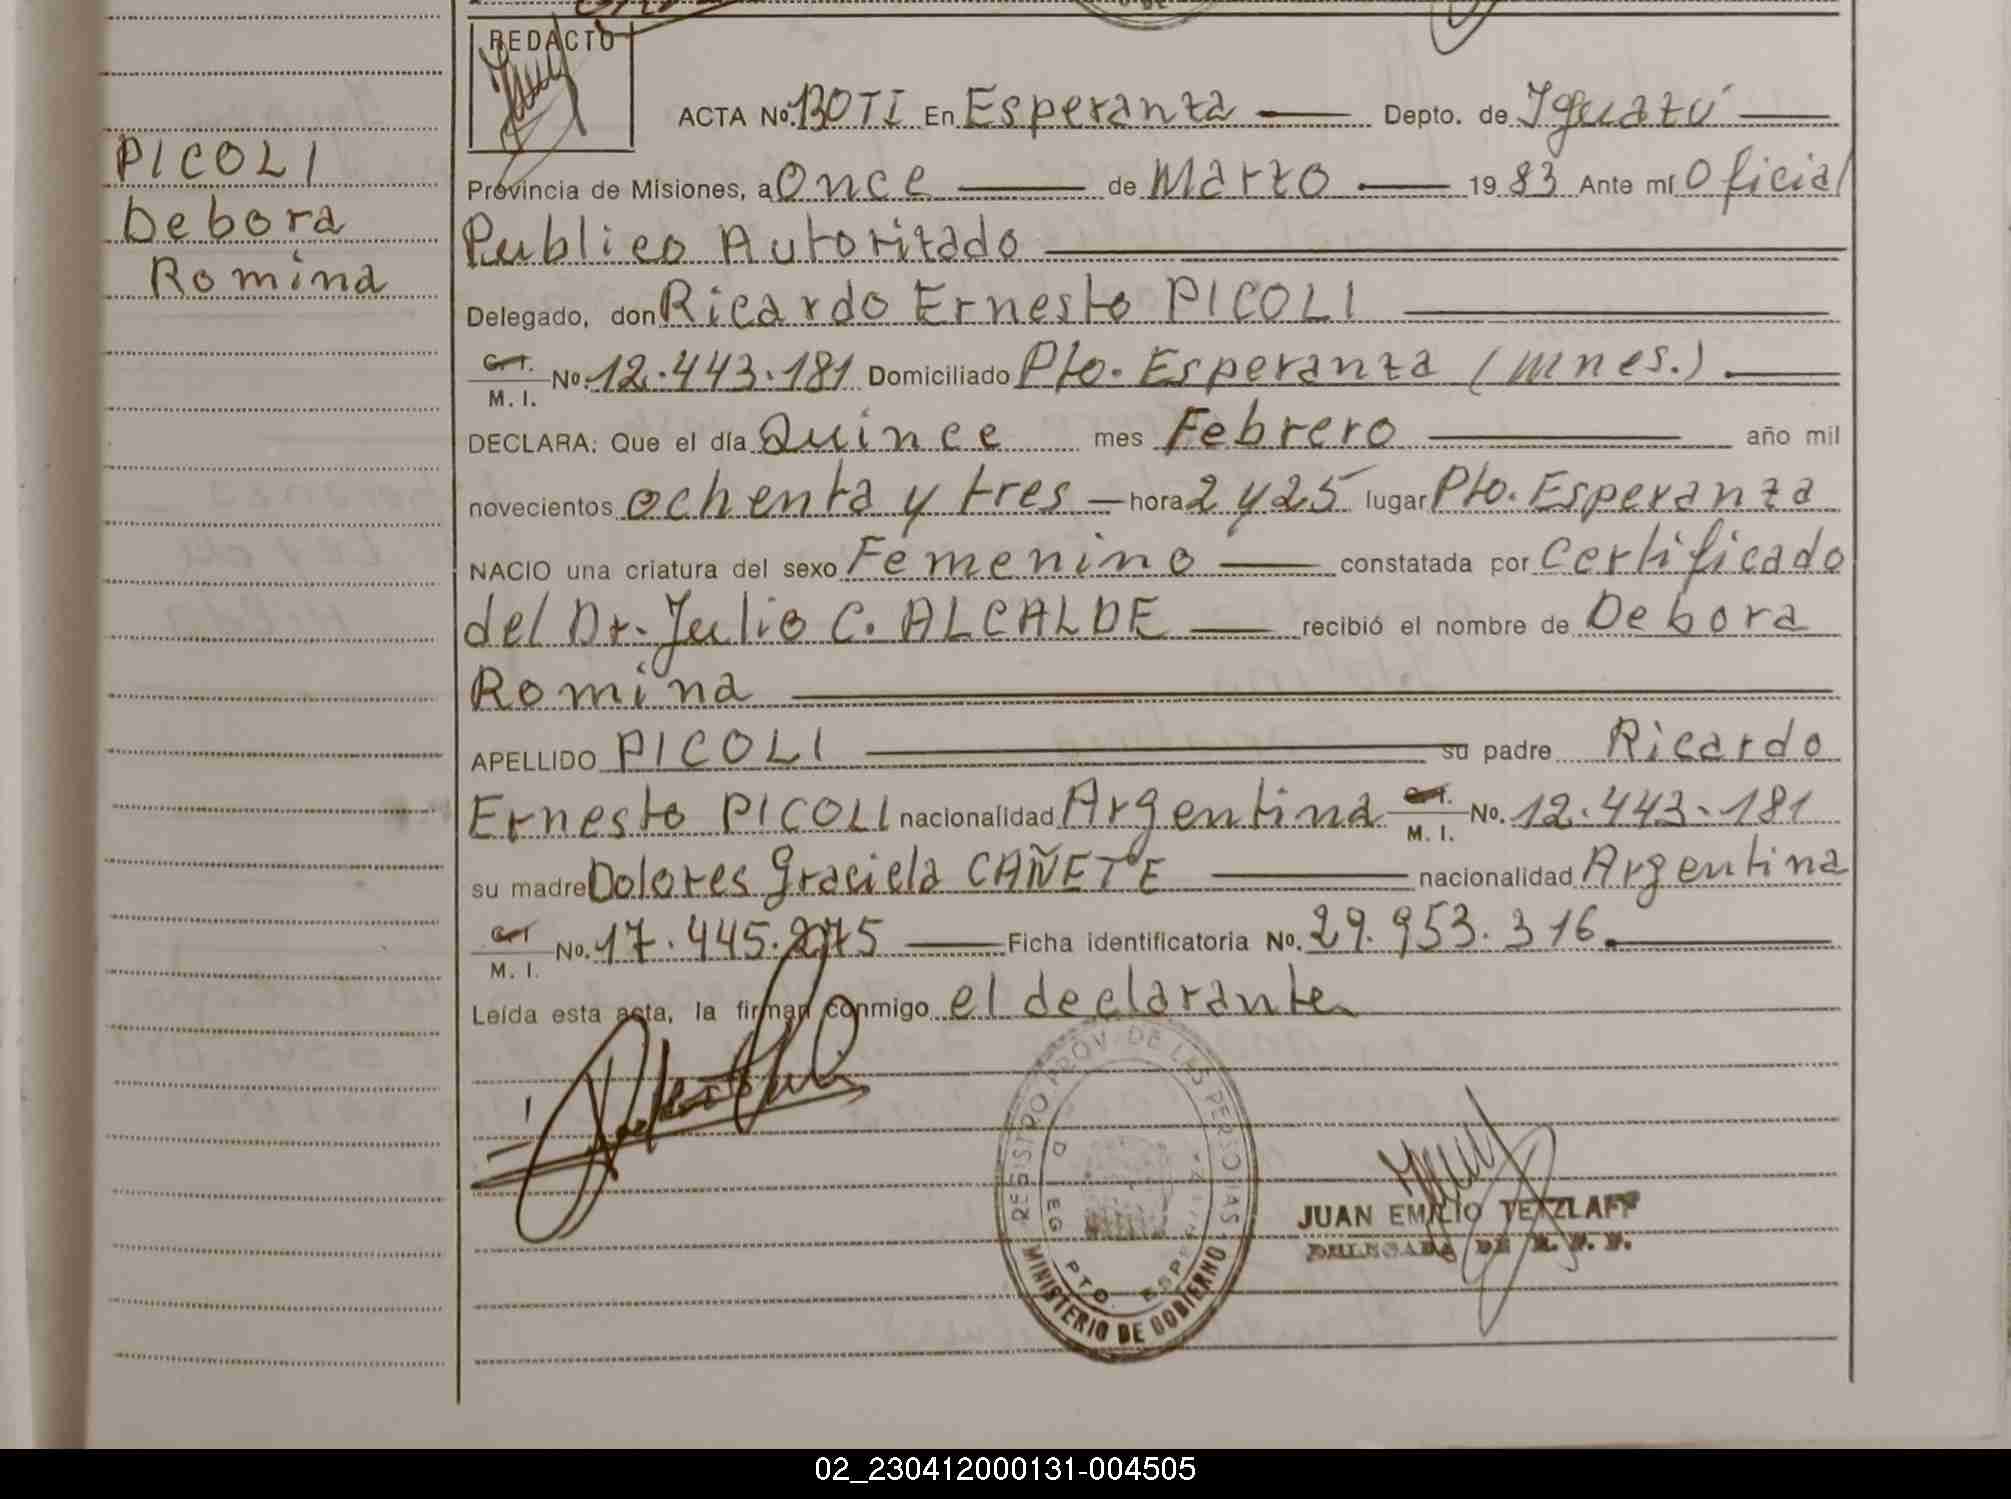 REDACTO
ACTA No. 130TI En Esperanza Depto. de Iguazú
PICOLI
Debora
Romina
Provincia de Misiones, a Once de Marzo 1983 Ante mí Oficial
Publico Autorizado
Delegado, don Ricardo Ernesto PICOLI
C. I.
M. I. No. 12.443.181 Domiciliado Pto. Esperanza (Mnes.)
DECLARA: Que el día Quince mes Febrero año mil
novecientos ochenta y tres hora 2 y 25 lugar Pto. Esperanza
NACIO una criatura del sexo Femenino constatada por Certificado
del Dr. Julio C. ALCALDE recibió el nombre de Debora
Romina
APELLIDO PICOLI su padre Ricardo
Ernesto PICOLI nacionalidad Argentina C. I. M. I. No. 12.443.181
su madre Dolores Graciela CAÑETE nacionalidad Argentina
C. I.
M. I. No. 17.445. Ficha identificatoria No. 29.953.316
Leída esta acta, la firman conmigo el declarante
REGISTRO PROV. DE LAS PERSONAS
MINISTERIO DE GOBIERNO
PTO. ESPERANZA
JUAN EMILIO TETZLAFF
02_230412000131-004505